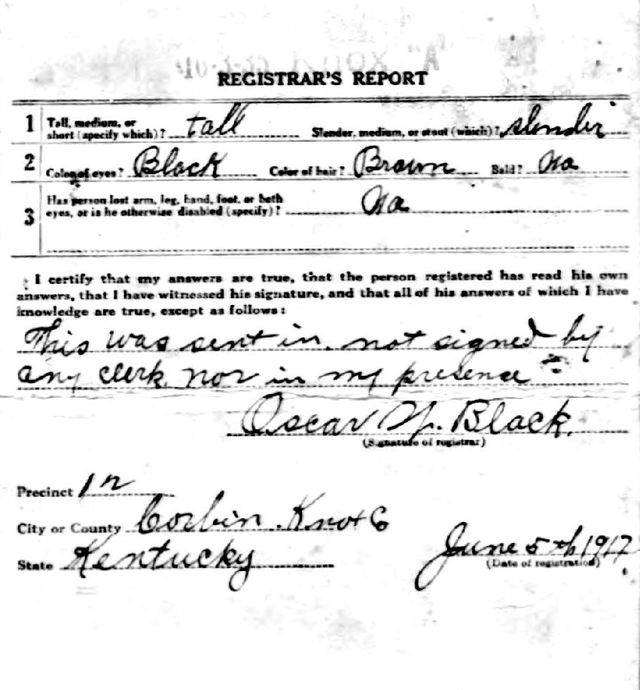 REGISTRAR'S REPORT
1 Tall, medium, or short (specify which)? tall Slender, medium, or stout (which)? slender
2 Color of eyes? Black Color of hair? Brown Bald? No
3 Has person lost arm, leg, hand, foot, or both eyes, or is he otherwise disabled (specify)? No
I certify that my answers are true, that the person registered has read his own
answers, that I have witnessed his signature, and that all of his answers of which I have
knowledge are true, except as follows:
This was sent in not signed by
any clerk nor in my presence
Oscar Black.
(Signature of registrar)
Precinct
City or County Corbin. Knox Co
State Kentucky June 5th 1917
(Date of registration)